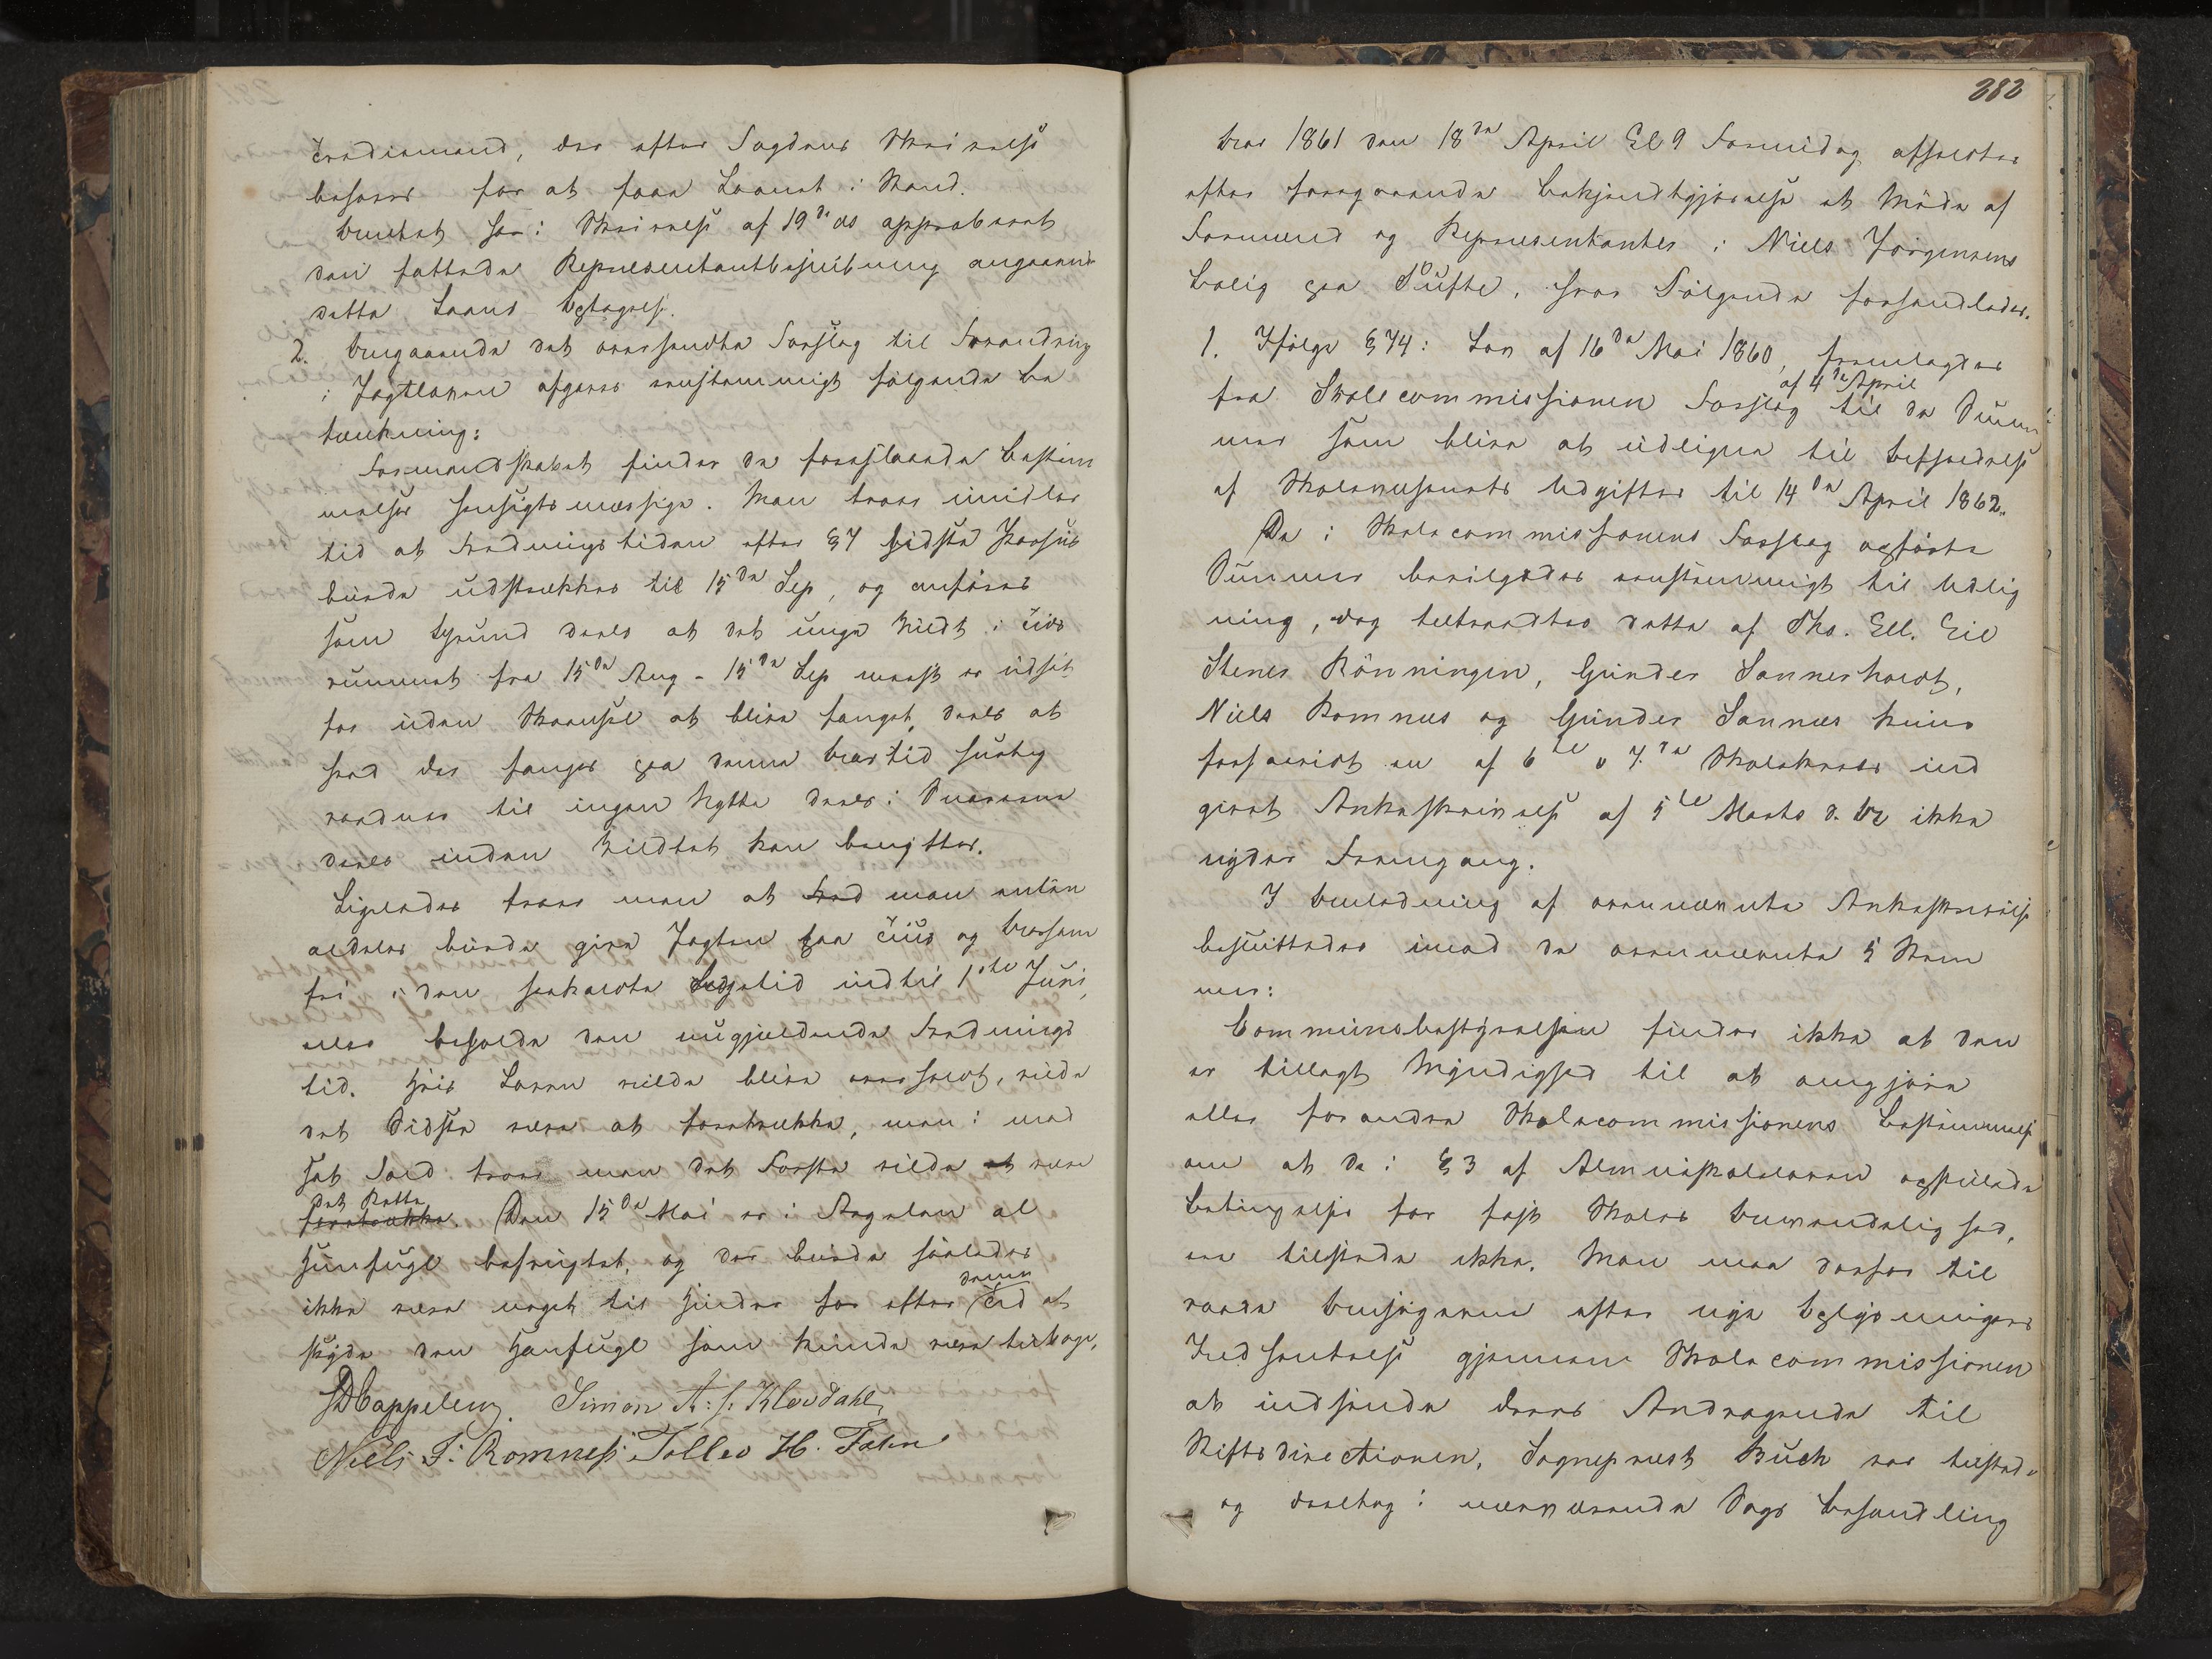 Trediemand, der efter Fogdens Skrivelse
behøves for at faae Laanet i Stand.
Amtet har i Skrivelse af 19de ds approberet
den fattede Repræsentantbeslutning angaaende
dette Laans Optagelse.
2. Angaaende det oversendte Forslag til Forandring
i Jagtloven afgaves eenstemmigt følgende Be
tænkning:
Formandskabet finder de foreslaaede Bestem
melser hensigtsmæssige. Man troer imidler
tid at Fredningstiden efter § 7 sidste Passus
burde udstrækkes til 15de Sep, og anføres
som Grund deels at det unge Vildt i Tids
rummet fra 15de Aug - 15de Sep mest er udsat
for uden Skaansel at blive fanget, deels at
hvad der fanges paa denne Aarstid hurtig
raadner til ingen Nytte deels i Snarerne
deels inden Vildtet kan benyttes.
Ligeledes troer man at hvad man enten
aldeles burde give Jagten paa Tiur og Aarhane
fri i den saakaldte Legetid indtil 1ste Juni,
eller beholde den nugjældende Frednings
tid. Hvis Loven vilde blive overholdt, vilde
det Sidste være at foretrække, men i mod
sat Fald troer man det Første vilde at være
det Rette
foretrække. Den 15de Mai er i Regelen al
Hunfugl befrugtet, og der burde saaledes
ikke være noget til Hinder for efter denne Tid at
skyde den Hanfugl som kunde være tilbage.
DCappelen. Simon A: s. Klovdahl,
Niels J: Romness Tollev H. Folen
282
Aar 1861 den 18de April Kl 9 Formidag afholdtes
efter foregaaende Bekjendtgjørelse et Møde af
Formænd og Repræsentanter i Niels Jørgensens
Bolig paa Tufte, hvor Følgende forhandledes.
1. Ifølge § 74 i Lov af 16de Mai 1860, fremlagdes
af 4de April
fra Skolecommissionen Forslag til de Sum
mer som blive at udligne til Bestridelse
af Skolevæsenets Udgifter til 14de April 1862.
De i Skolecommissionens Forslag opførte
Summer bevilgedes eenstemmigt til Udlig
ning, dog tiltraadtes dette af Tho. Ell. Eie
Stener Rönningen, Gunder Sannerholdt,
Niels Romnes og Gunder Sannes kuns
forsaavidt en af 6te o 7de Skolekreds ind
givet Ankeskrivelse af 5te Marts d. Ar ikke
nyder Fremgang.
I Anledning af ovennævnte Ankeskrivelse
besluttedes imod de ovennævnte 5 Stem
mer:
Communebestyrelsen finder ikke at den
er tillagt Myndighed til at omgjøre
eller forandre Skolecommissionens Bestemmelse
om at de i § 3 af Almueskoleloven opstillede
Betingelser for fast Skoles Anvendelighed,
ere tilstede ikke. Man maa derfor til
raade Ansøgerne efter nye Oplysningers
Indhentelse gjennem Skolecommissionen
at indsende deres Andragende til
Stiftsdirectionen. Sognepræst Buch var tilstede
og deeltog i nærværende Sags Behandling